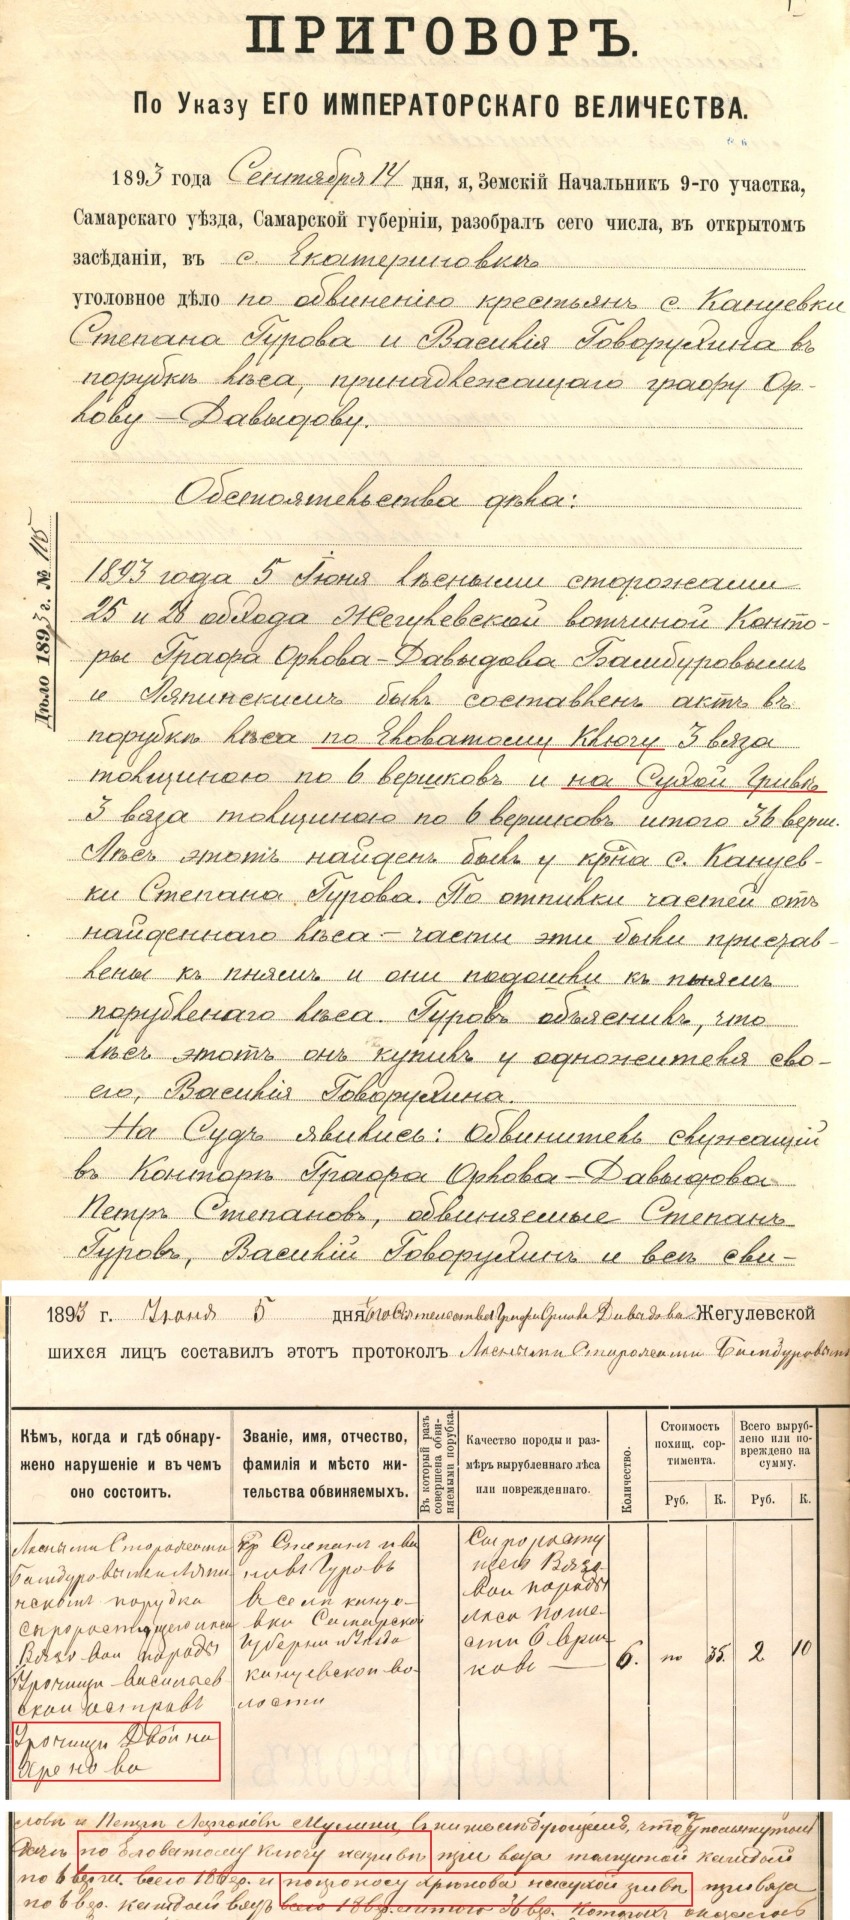 ПРИГОВОРЪ.
По Указу ЕГО ИМПЕРАТОРСКАГО ВЕЛИЧЕСТВА.
1893 года Сентября 14 дня, я, Земскій Начальникъ 9-го участка,
Самарскаго уѣзда, Самарской губерніи, разобралъ сего числа, въ открытомъ
засѣданіи, въ с. Екатериновкѣ
уголовное дѣло по обвиненію крестьянъ с. Кануевки
Степана Гурова и Василія Говорухина въ
порубкѣ лѣса, принадлежащаго графу Ор-
лову-Давыдову.
Обстоятельства дѣла:
Дѣло 1893 г. № 115
1893 года 5 Іюня лѣсными сторожами
25 и 28 обхода Жегулевской вотчиной Конто-
ры Графа Орлова-Давыдова Бамбуровымъ
и Ляпинскимъ былъ составленъ актъ въ
порубкѣ лѣса по Еловатому Ключу 3 вяза
толщиною по 6 вершковъ и на Сухой Гривѣ
3 вяза толщиною по 6 вершковъ итого 36 верш.
Лѣсъ этотъ найденъ былъ у кр-на с. Кануев-
ки Степана Гурова. По отпилки частей отъ
найденнаго лѣса - части эти были пристав-
лены къ пнямъ и они подошли къ пнямъ
порубленаго лѣса. Гуровъ объяснилъ, что
лѣсъ этотъ онъ купилъ у одножителя сво-
его, Василія Говорухина.
На Судъ явились: Обвинитель служащій
въ Конторѣ Графа Орлова-Давыдова
Петръ Степановъ, обвиняемые Степанъ
Гуровъ, Василій Говорухинъ и всѣ сви-
1893 г. Июня 5 дня Его Сиятельства Графа Орлова Давыдова Жегулевской
шихся лицъ составилъ этотъ протоколъ Лесными Сторожами Бамбуровымъ
Кѣмъ, когда и гдѣ обнару-
жено нарушеніе и въ чемъ
оно состоитъ.
Званіе, имя, отчество,
фамилія и мѣсто жи-
тельства обвиняемыхъ.
Въ который разъ
совершена обви-
няемыми порубка.
Качество породы и раз-
мѣръ вырубленнаго лѣса
или поврежденнаго.
Количество.
Стоимость
похищ. сор-
тимента.
Руб. К.
Всего выруб-
лено или по-
вреждено на
сумму.
Руб. К.
Лесными Сторожами
Бамбуровымъ и Ляпи
нскимъ порубка
сыроростущего леса
Вязовои породы
Урочищи васильев
скои островъ
Урочищи Двойна
Хренова
кр Степанъ ива
новъ Гуровъ
в селѣ кануе-
вки Самарской
губерни уезда
кануевской во-
лости
Сыроросту
щего Вязо-
вои породы
леса поше-
сти 6 верш
ковъ
6. по 35. 2 10
по Еловатому ключу три вяза толщиной каждый
по 6 верш. всего 18 вер. и Хрянова насухой гривѣ три вяза
по 6 вер. каждый вязъ всего 18 вер. итого 36 вер.